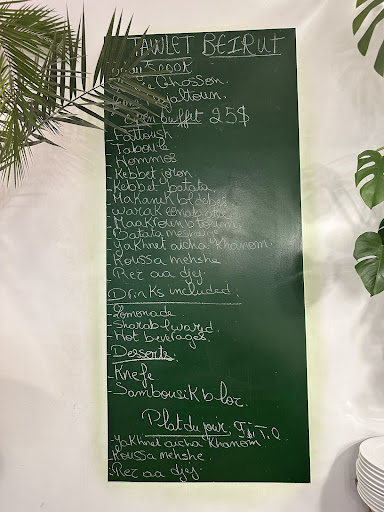 TAWLET BEIRUT
cook
Ghosson.
open buffet 25$
- Fattoush
- Taboule
- Hommos
- Kebbet joron
- Kebbet batata
- Makanik bl debes
- warak
- Maakroun b toum
- Batata
- Yakhnet aicha Khanom.
- Koussa mehshe
- Rez aa djej.
Drinks included.
- Lemonade.
- Sharab l ward.
- Hot beverages.
- Desserts.
- Knefe
- Sambousik b loz.
Plat du jour,
- Yakhnet aicha Khanom
- Koussa mehshe.
- Rez aa djej.